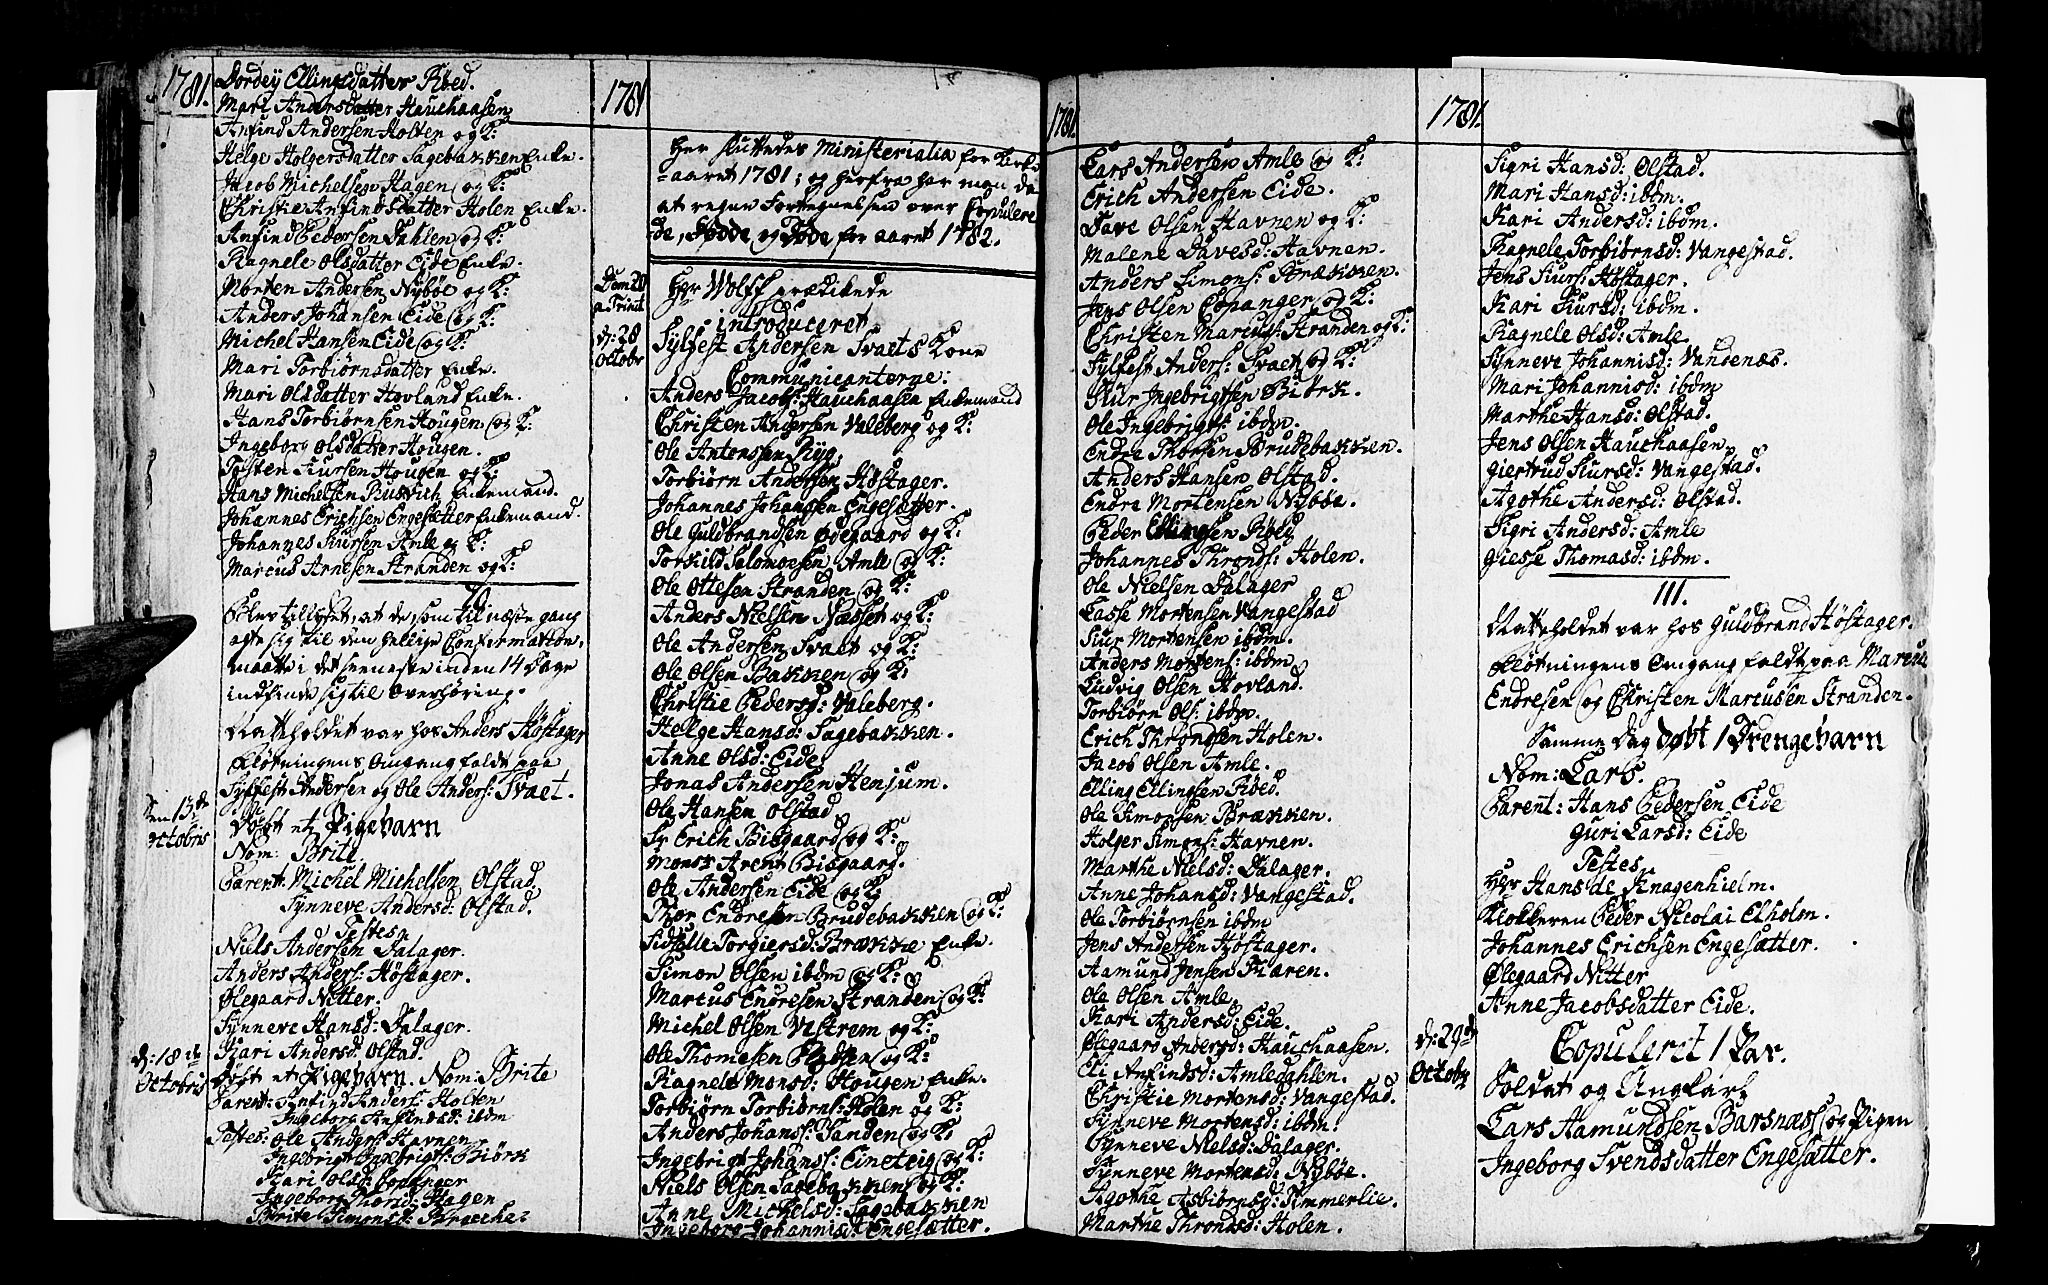 1781.
Dordey Ellingsdatter Röed.
Mari Andersdatter Hauchaasen
Anfind Andersen Holten og K:
Helge Holgersdatter Sagebakken Enke.
Jacob Michelsen Hagen og K:
Christie Anfindsdatter Holen Enke.
Anfind Pedersen Dahlen og K:
Ragnele Olsdatter Eide Enke.
Morten Andersen Nyböe og K:
Anders Johansen Eide og K:
Michel Hansen Eide og K:
Mari Torbiörnsdatter Enke.
Mari Olsdatter Hovland Enke.
Hans Torbiörnsen Hougen og K:
Ingeborg Olsdatter Hougen.
Tosten Siursen Hougen og K:
Hans Michelsen Enkemand.
Johannes Erichsen Engesætter Enkemand.
Johannes Siursen Amle og K:
Marcus Arnesen Stranden og K:
70
Blev tillyset, at de, som til næste gang
agte sig til den hellige Confirmation,
maatte i det seeneste inden 14 Dage
indfinde sig til Overhöring.
Natteholdet var hos Anders Höstager
Fløtningens Omgang faldt paa
Sylfest Andersen og Ole Anders: Svaet.
Den 13de
Octobris
Döbt et Pigebarn
Nom: Brite.
Parent: Michel Michelsen Olstad
Synneve Andersd: Olstad.
Testes
Niels Andersen Dalager.
Anders Anders: Höstager.
Ølegaard Nitter.
Synneve Hansd: Dalager.
Kari Andersd: Olstad.
d: 18de
Octobris
Döbt et Pigebarn. Nom: Brite
Parent: Anfind Anders: Holten
Ingeborg Anfindsd: ibdm
Testes: Ole Anders: Havnen
Ingebrigt Ingebrigts: Biörk
Kari Olsd: Copanger
Ingeborg Thorsd: Hagen
Brite Simonsd:
1781
Her sluttedes Ministerialia for Kirke
=aaret 1781; og herfra har man da
at regne Fortegnelsen over Copulere
de, Födde og Döde for aaret 1782.
Dom 20
a Trinit
d: 28
Octobr
Her Wolff prædikede
introduceret
Sylfest Andersen Svaets Kone
Communicanterne:
Anders Jacobs: Hauchaasen Enkemand
Christen Andersen Valeberg og K:
Ole Antonssen Ryg.
Torbiörn Andersen Höstager.
Johannes Johannsen Engesætter.
Ole Guldbrandsen Ödegaard og K:
Torkild Salomoesen Amle og K:
Ole Ottesen Stranden og K:
Anders Nielsen Næsset og K:
Ole Andersen Svaet og K:
Ole Olsen Bakken og K:
Christie Pedersd: Valeberg.
Helge Hansd: Sagebakken.
Anne Olsd: Eide
Jonas Andersen Henjum.
Ole Hansen Olstad
Sr Erich Bisgaard og K:
Mons: Arent Bisgaard.
Ole Andersen Eide og K:
Thor Endresen Brudebakken og K:
Sidselle Torgiersd: Brække Enke.
Simon Olsen ibdm og K:
Marcus Endresen Stranden og K:
Michel Olsen Vestrem og K:
Ole Thomesen og K:
Ragnele Monsd: Hougen Enke.
Torbiörn Torbiörns: Holen og K:
Anders Johans: Sanden og K:
Ingebrigt Johans: Eineteig og K:
Niels Olsen Sagebakken og K:
Anne Michelsd: Sagebakken
Ingeborg Johannisd: Engesætter.
1781.
Lars Andersen Amle og K:
Erich Andersen Eide.
Dave Olsen Havnen og K:
Malene Davesd: Havnen.
Anders Simons: Brækken.
Jens Olsen Copanger og K:
Christen Marcus: Stranden og K:
Sylfest Anders: Svaet og K:
Siur Ingebrigtsen Biörk.
Ole Ingebrigts: ibdm.
Endre Thorsen Brudebakken.
Anders Hansen Olstad.
Endre Mortensen Nyböe.
Peder Ellingsen Röed
Johannes Thronds: Holen.
Ole Nielsen Dalager
Lasse Mortensen Vangestad
Siur Mortensen ibdm.
Anders Mortens: ibdm
Ludvig Olsen Hovland.
Torbiörn Ols: ibdm.
Erich Throndsen Holen.
Jacob Olsen Amle.
Elling Ellingsen Röed.
Ole Simonsen Brækken.
Holger Simons: Havnen.
Marthe Nielsd: Dalager.
Anne Johansd: Vangestad.
Ole Torbiörnsen ibdm
Jens Andersen Höstager.
Aamund Jensen Skaren.
Ole Olsen Amle.
Kari Andersd: Eide.
Ølegaard Andersd: Hauchaasen.
Eli Anfindsd: Amledahlen.
Christie Mortensd: Vangestad.
Synneve Mortensd: ibdm.
Synneve Nielsd: Dalager.
Synneve Mortensd: Nyböe.
Agothe Asbiörnsd: Timmerlie.
Marthe Throndsd: Holen.
1781.
Sigri Hansd: Olstad.
Mari Hansd: ibdm.
Kari Andersd: ibdm.
Ragnele Torbiörnsd: Vangestad.
Jens Siurs: Höstager.
Kari Siursd: ibdm.
Ragnele Olsd: Amle.
Synneve Johannisd: Vandenæs.
Mari Johannisd: ibdm
Marthe Hansd: Olstad.
Jens Olsen Hauchaasen
Giertrud Siursd: Vangestad.
Agothe Andersd: Olstad.
Sigri Andersd: Amle
Giesse Thomasd: ibdm.
111.
Natteholdet var hos Guldbrand Höstager.
Fløtningens Omgang faldt paa Marcus
Endresen og Christen Marcusen Stranden.
Samme Dag döbt 1 Drengebarn
Nom: Lars.
Parent: Hans Pedersen Eide
Guri Larsd: Eide
Testes
Herr Hans de Knagenhielm.
Klokkeren Peder Nicolai Elholm.
Johannes Erichsen Engesætter.
Ølegaard Nitter
Anne Jacobsdatter Eide.
d: 29de
Octobr
Copulerit 1 Par.
Soldat og Ungkarl
Lars Aamundsen Barsnæs og Pigen
Ingeborg Svendsdatter Engesætter.